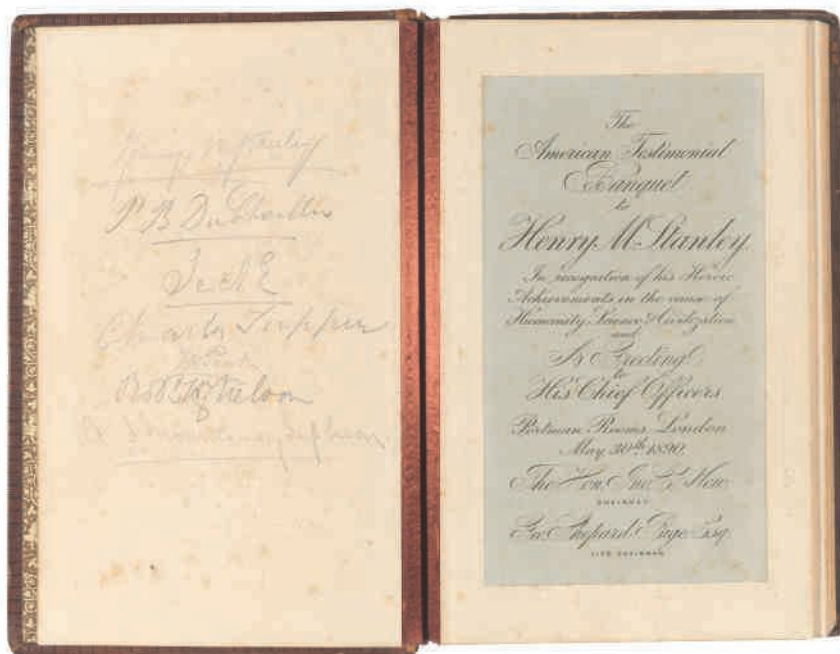 Henry M Stanley
Charles Tupper
Robt H Nelson
The
American Testimonial
Banquet
to
Henry M Stanley.
In recognition of his Heroic
Achievements in the cause of
Humanity, Science & Civilization
and
In Greeting
to
His Chief Officers
Portman Rooms, London
May 30th 1890.
The Hon. Jno. C. New
CHAIRMAN
Geo. Shepard Page Esq.
VICE CHAIRMAN